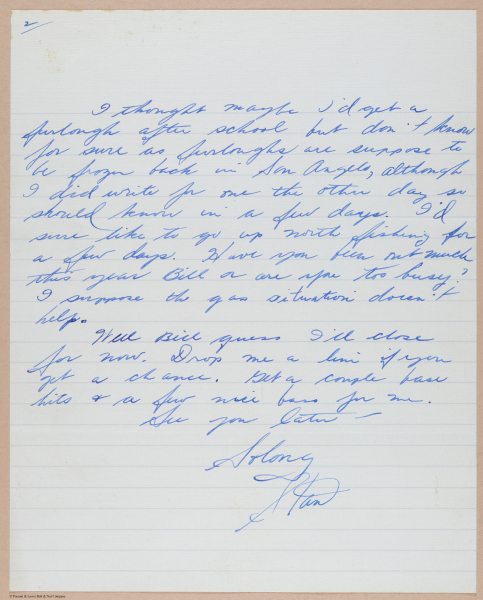 2
I thought maybe I'd get a
furlough after school but don't know
for sure as furloughs are suppose to
be frozen back in San Angelo, although
I did write for one the other day so
should know in a few days. I'd
sure like to go up north fishing for
a few days. Have you been out much
this year Bill or are you too busy?
I suppose the gas situation doesn't
help.
Well Bill guess I'll close
for now. Drop me a line if you
get a chance. Get a couple base
hits & a few nice bass for me.
See you later —
So long
Stan